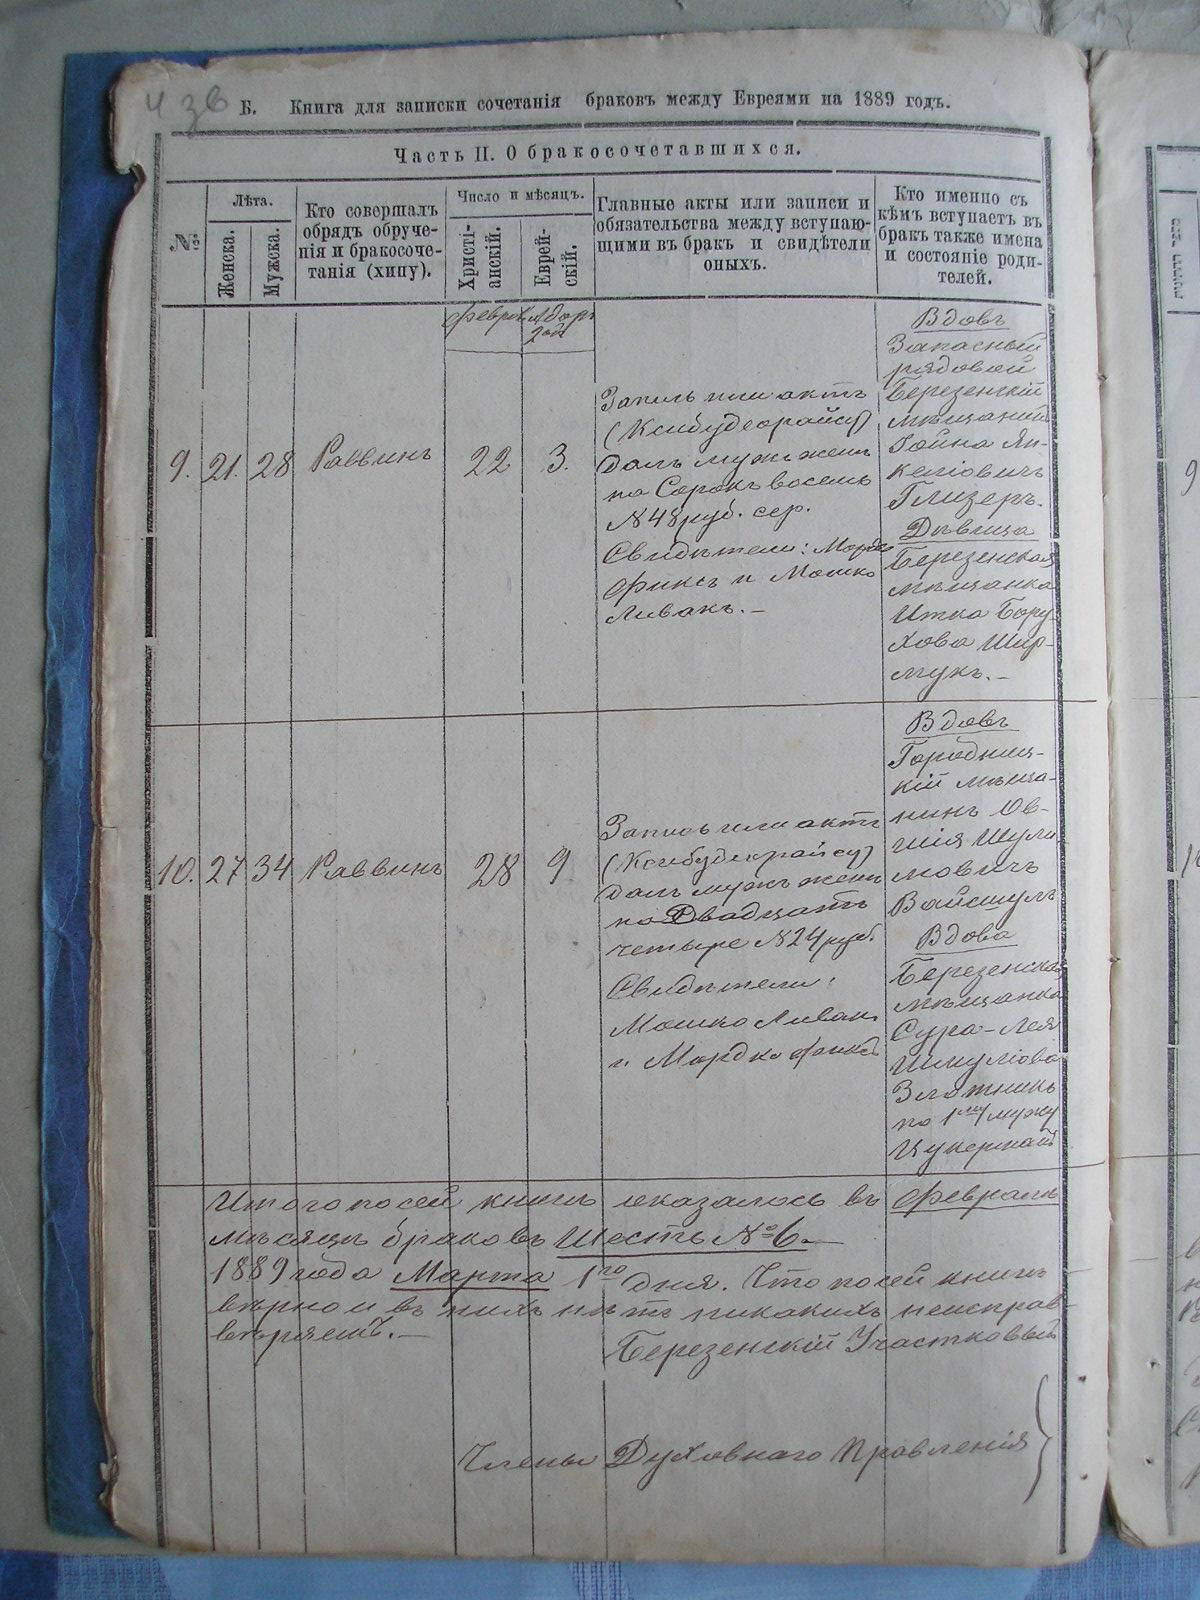 Б. Книга для записки сочетанія браковъ между Евреями на 1889 годъ.
Часть II. О бракосочетавшихся.
№
Лѣта.
Женска.
Мужска.
Кто совершалъ
обрядъ обруче-
нія и бракосоче-
танія (хипу).
Число и мѣсяцъ.
Христі-
анскій.
Еврей-
скій.
Главные акты или записи и
обязательства между вступаю-
щими въ бракъ и свидѣтели
оныхъ.
Кто именно съ
кѣмъ вступаетъ въ
бракъ также имена
и состояніе роди-
телей.
9. 21. 28 Раввинъ 22 3.
Запись или актъ
далъ мужъ женѣ
на Сорокъ восемь
№48 руб. сер.
Свидѣтели: Мордко
Фиксъ и Мошко
Ливакъ.—
Вдовъ
Запасный
рядовой
Березенскій
мѣщанинъ
Гойна Ян-
келіовичъ
Глизеръ.
Дѣвица
Березенская
мѣщанка
Итка Бору-
хова Шер-
мукъ.—
10. 27 34 Раввинъ 28 9
Запись или актъ
далъ мужъ женѣ
на Двадцать
четыре №24 руб.
Свидѣтели:
Мошко Ливакъ
и Мордко Фиксъ
Вдовъ
Городниц-
кій мѣща-
нинъ Ов-
шія Шули-
мовичъ
Вайсшулъ
Вдова
Березенская
мѣщанка
Сура-Лея
Шмуліова
Злотникъ
по 1му мужу
Цукерманъ
Итого по сей книгѣ оказалось въ Февралѣ
мѣсяцѣ браковъ Шесть №6.—
1889 года Марта 1го дня. Что по сей книгѣ
вѣрно и въ нихъ нѣтъ никакихъ неисправ-
Березенскій Участковый
Члены Духовнаго Правленія